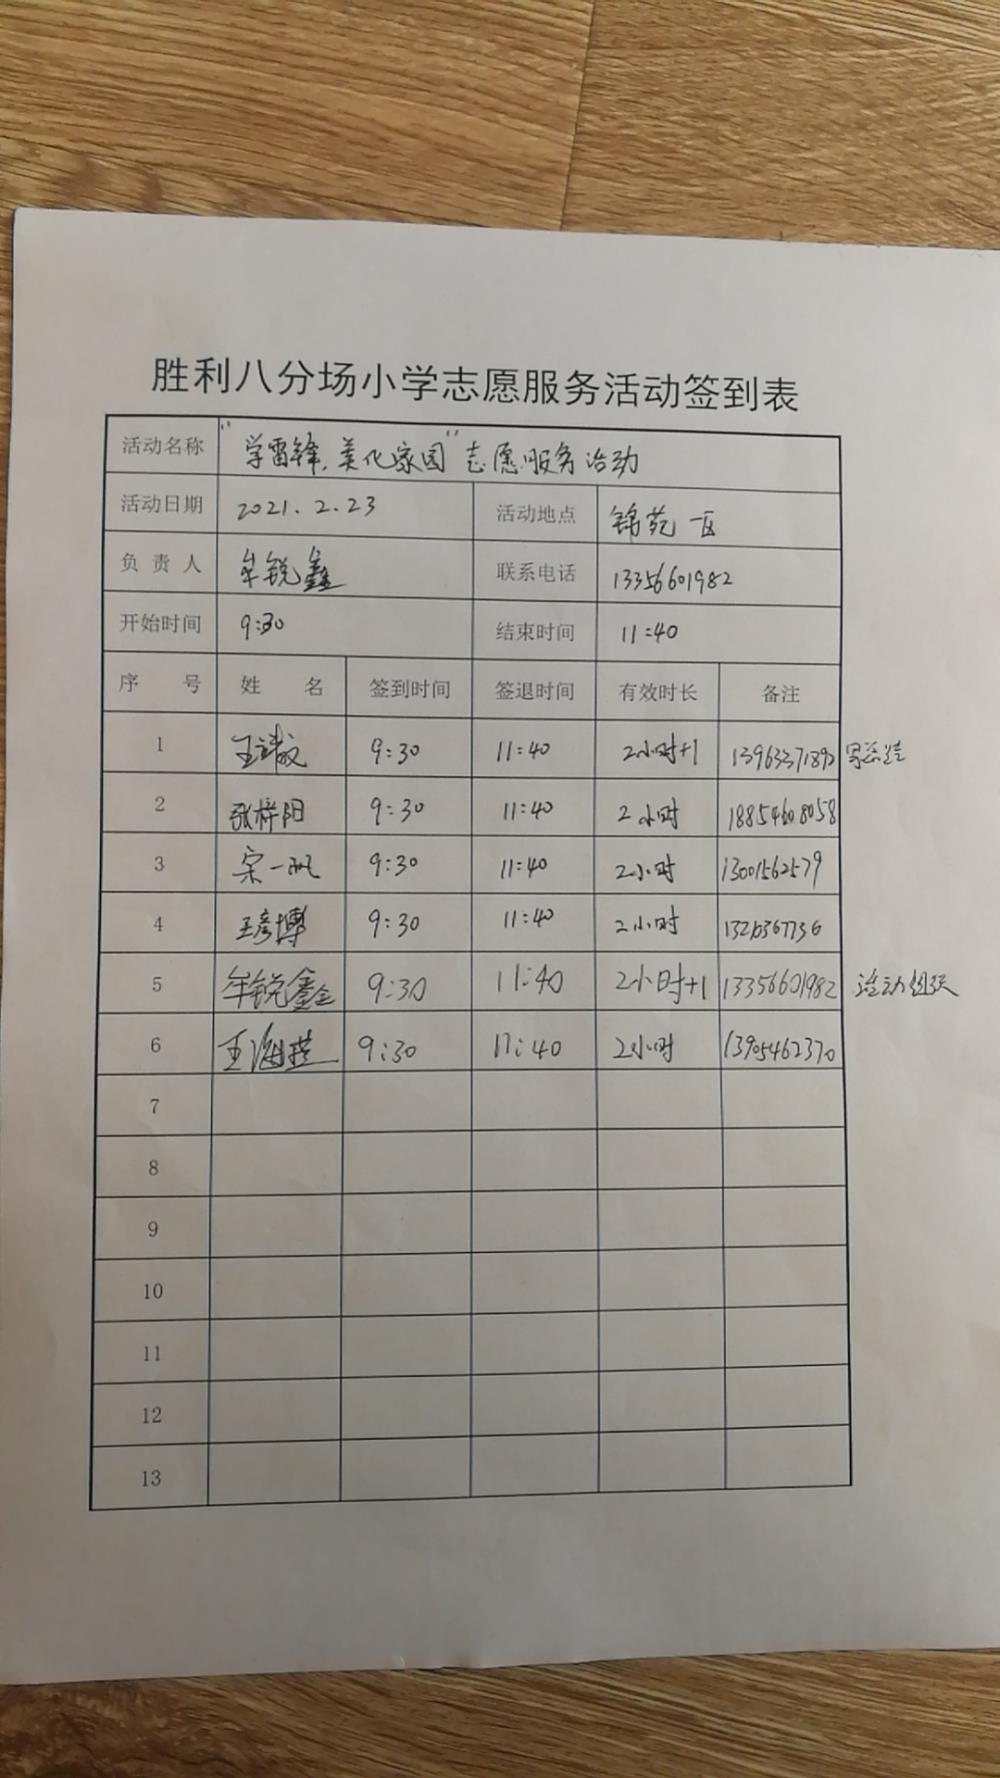 胜利八分场小学志愿服务活动签到表
活动名称 "学雷锋,美化家园"志愿服务活动
活动日期 2021.2.23 活动地点 锦苑一区
负责人 牟锐鑫 联系电话 13356601982
开始时间 9:30 结束时间 11:40
序号 姓名 签到时间 签退时间 有效时长 备注
1 9:30 11:40 2小时+1 13963371892
2 张梓阳 9:30 11:40 2小时 18854608058
3 宋一帆 9:30 11:40 2小时 13001562579
4 王彦博 9:30 11:40 2小时
5 牟锐鑫 9:30 11:40 2小时+1 13356601982 活动组织
6 9:30 11:40 2小时 13905462370
7
8
9
10
11
12
13